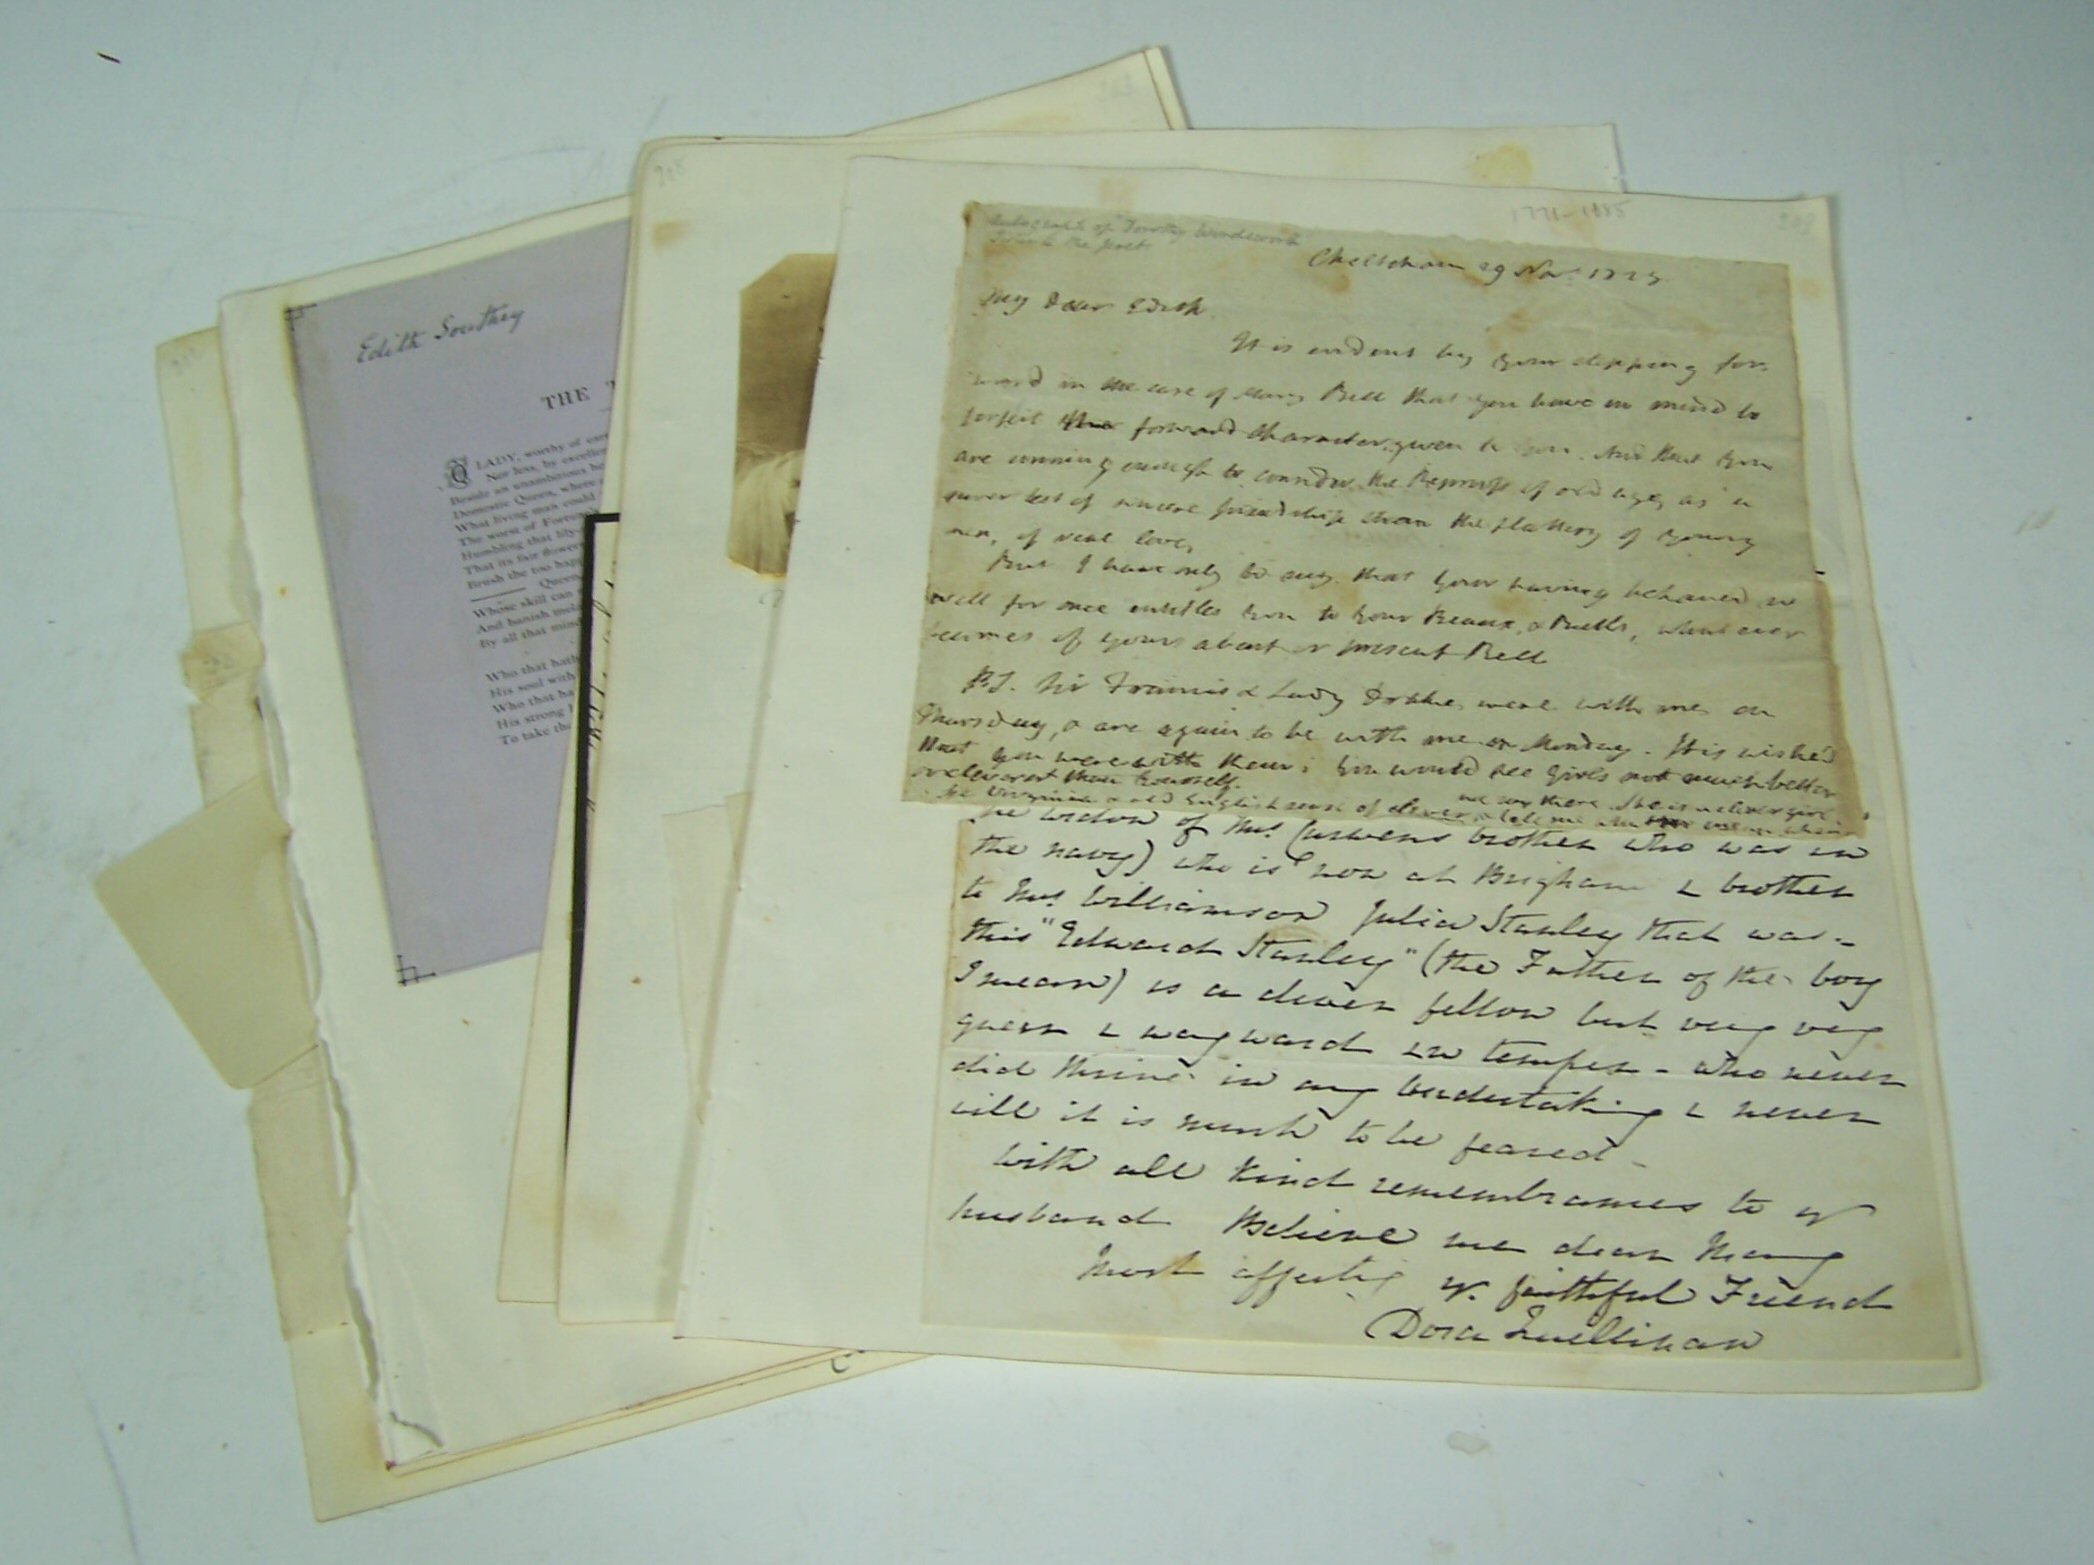 Edith Southey
THE
LADY, worthy of
Nor less, by excellen
Beside an unambitious he
Domestic Queen, where
What living man could
The worst of Fortun
Humbling that lily
That its fair flower
Brush the too hap
Queen
Whose skill can
And banish mel
By all that mind
Who that hath
His soul with
Who that ha
His strong
To take the
208
1771-1855
208
Autograph of Dorothy Wordsworth
the poet
Cheltenham 29 Nov
My Dear Edith
It is evident by your stepping for
ward in the case of Mary Bell that you have in mind to
forfeit the forward character given to you. And that you
are cunning enough to consider the of old age, as a
surer test of sincere friendship than the flattery of young
men, of real love,
But I have only to say that your having behaved so
well for once entitles you to your Beaux, & Bells, whatever
becomes of yours absent or present Bell
P.S. Sir Francis & Lady Drake were with me on
Thursday, & are again to be with me on Monday. It is wished
that you were with them; you would see girls not much better
or cleverer than yourself.
old English sense of clever
the widow of Mrs Curwens brother who was in
the navy) who is now at Brigham & brother
to Mrs Williamson Julia Stanley that was -
this "Edward Stanley" (the Father of the boy
I mean) is a clever fellow but very very
queer & wayward in temper - who never
did thrive in any undertaking & never
will it is much to be feared -
With all kind remembrances to yr
husband Believe me dear Mary
Most affectly yr. faithful Friend
Dora Quillinan